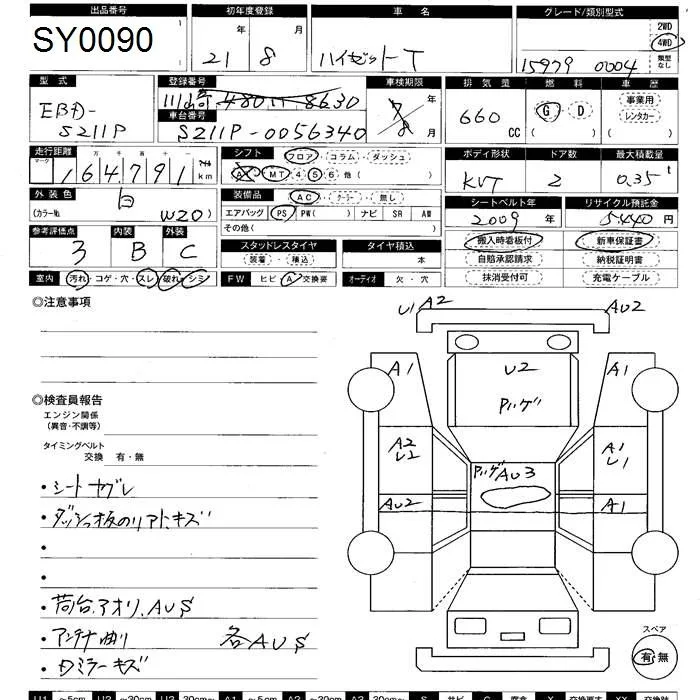 出品番号 初年度登録 車名 グレード/類別型式
SY0090 21年 8月 ハイゼットT 15979 0004 2WD 4WD 類型なし
型式 登録番号 車検期限 排気量 燃料 車歴
EBD-S211P 480 8630 年 月 660 CC G・D ( ) 事業用 レンタカー ( )
車台番号
S211P-0056340
走行距離 シフト フロア・コラム・ダッシュ ボディ形状 ドア数 最大積載量
マーク 十万千百十 164791 km AT MT 4 5 6 他( ) 2 0.35t
外装色 装備品 AC・クーラー・無し シートベルト年 リサイクル預託金
白 (カラーNo. W20) エアバッグ PS PW( ) ナビ SR AW 2009年 5440円
その他( )
参考評価点 内装 外装 スタッドレスタイヤ タイヤ積込 搬入時看板付 新車保証書
3 B C 装着・積込 本 自賠承認請求 納税証明書
室内 汚れ・コゲ・穴・スレ・破れ・シミ FW ヒビ・A・交換要 オーディオ 欠・穴 抹消受付可 充電ケーブル
◎注意事項
U1 A2 AU2
A1 U2 A1
◎検査員報告
エンジン関係
(異音・不調等)
タイミングベルト
交換 有・無
A2 AU3 A1
AU2 A1
・シートヤブレ
・ダッシュ板のリアトキズ
・
・
・荷台.アオリ.AUS
・アンテナ曲り 各AUS
・Dミラーキズ
スペア
有・無
U1 ~5cm U2 ~30cm U3 30cm~ A1 ~5cm A2 ~30cm A3 30cm~ S サビ C 腐食 X 交換要 XX 交換跡